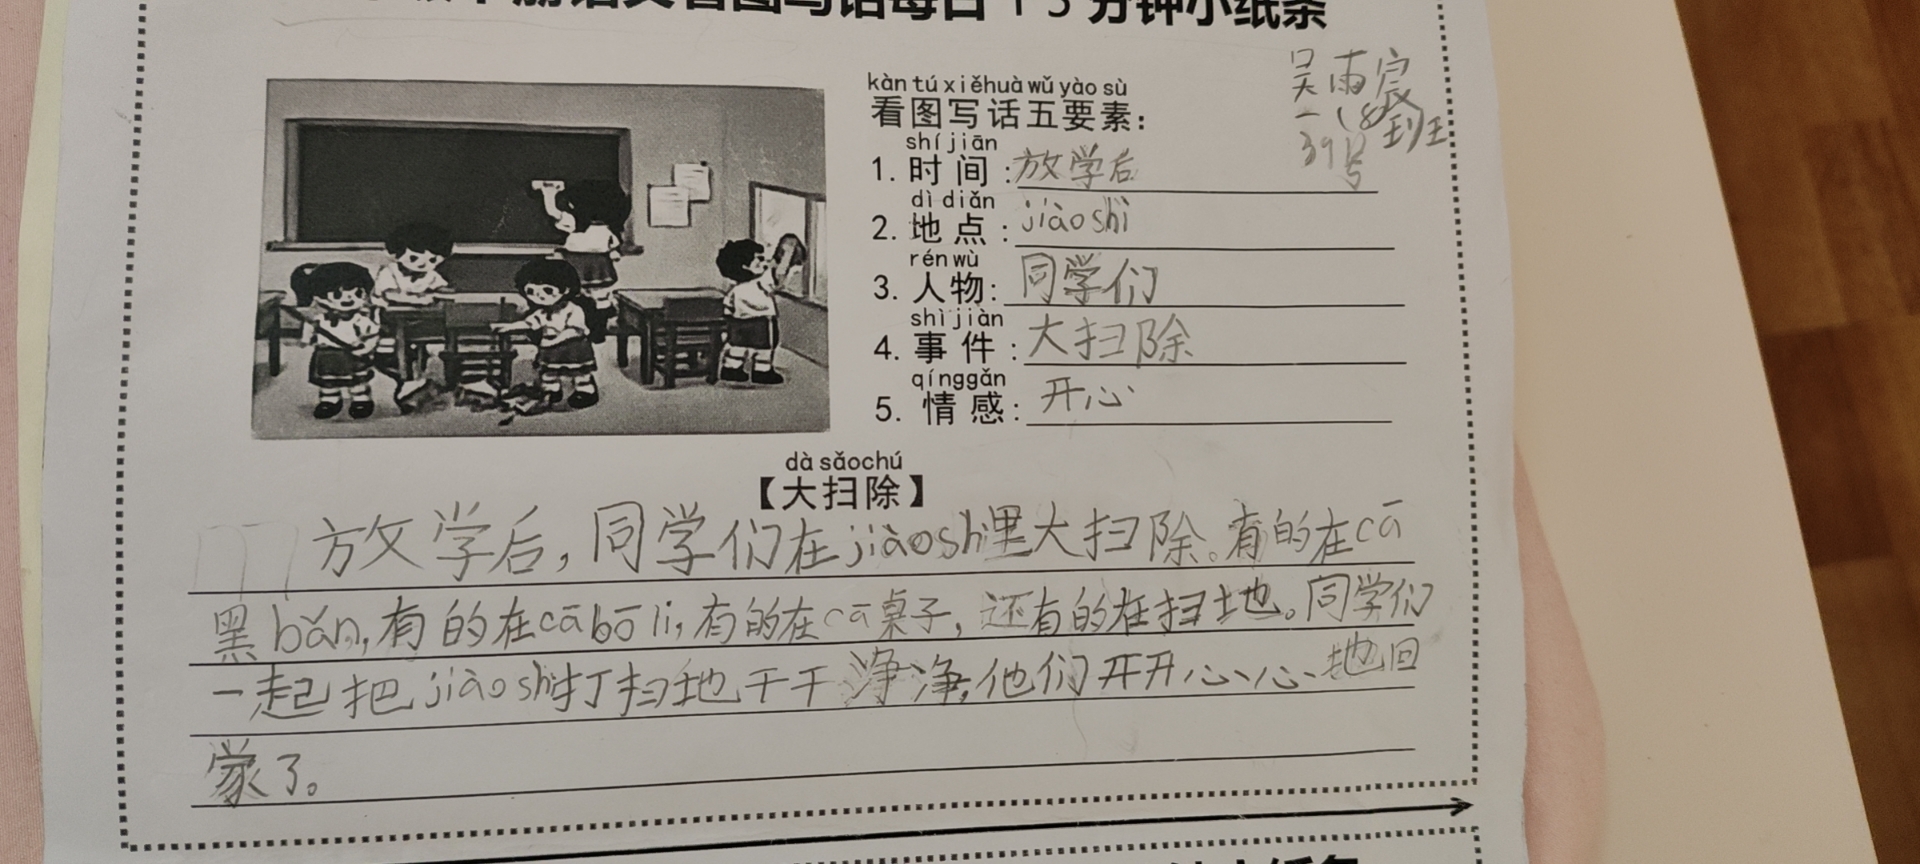 分钟小纸条
kàn tú xiěhuà wǔ yào sù
看图写话五要素：
吴雨宸
一(8)班
39号
shí jiān
1. 时间：放学后
dì diǎn
2. 地点：jiàoshì
rén wù
3. 人物：同学们
shì jiàn
4. 事件：大扫除
qínggǎn
5. 情感：开心
dà sǎochú
【大扫除】
放学后，同学们在jiàoshì里大扫除。有的在cā
黑bǎn，有的在cābōli，有的在cā桌子，还有的在扫地。同学们
一起把jiàoshì打扫地干干净净，他们开开心心地回
家了。